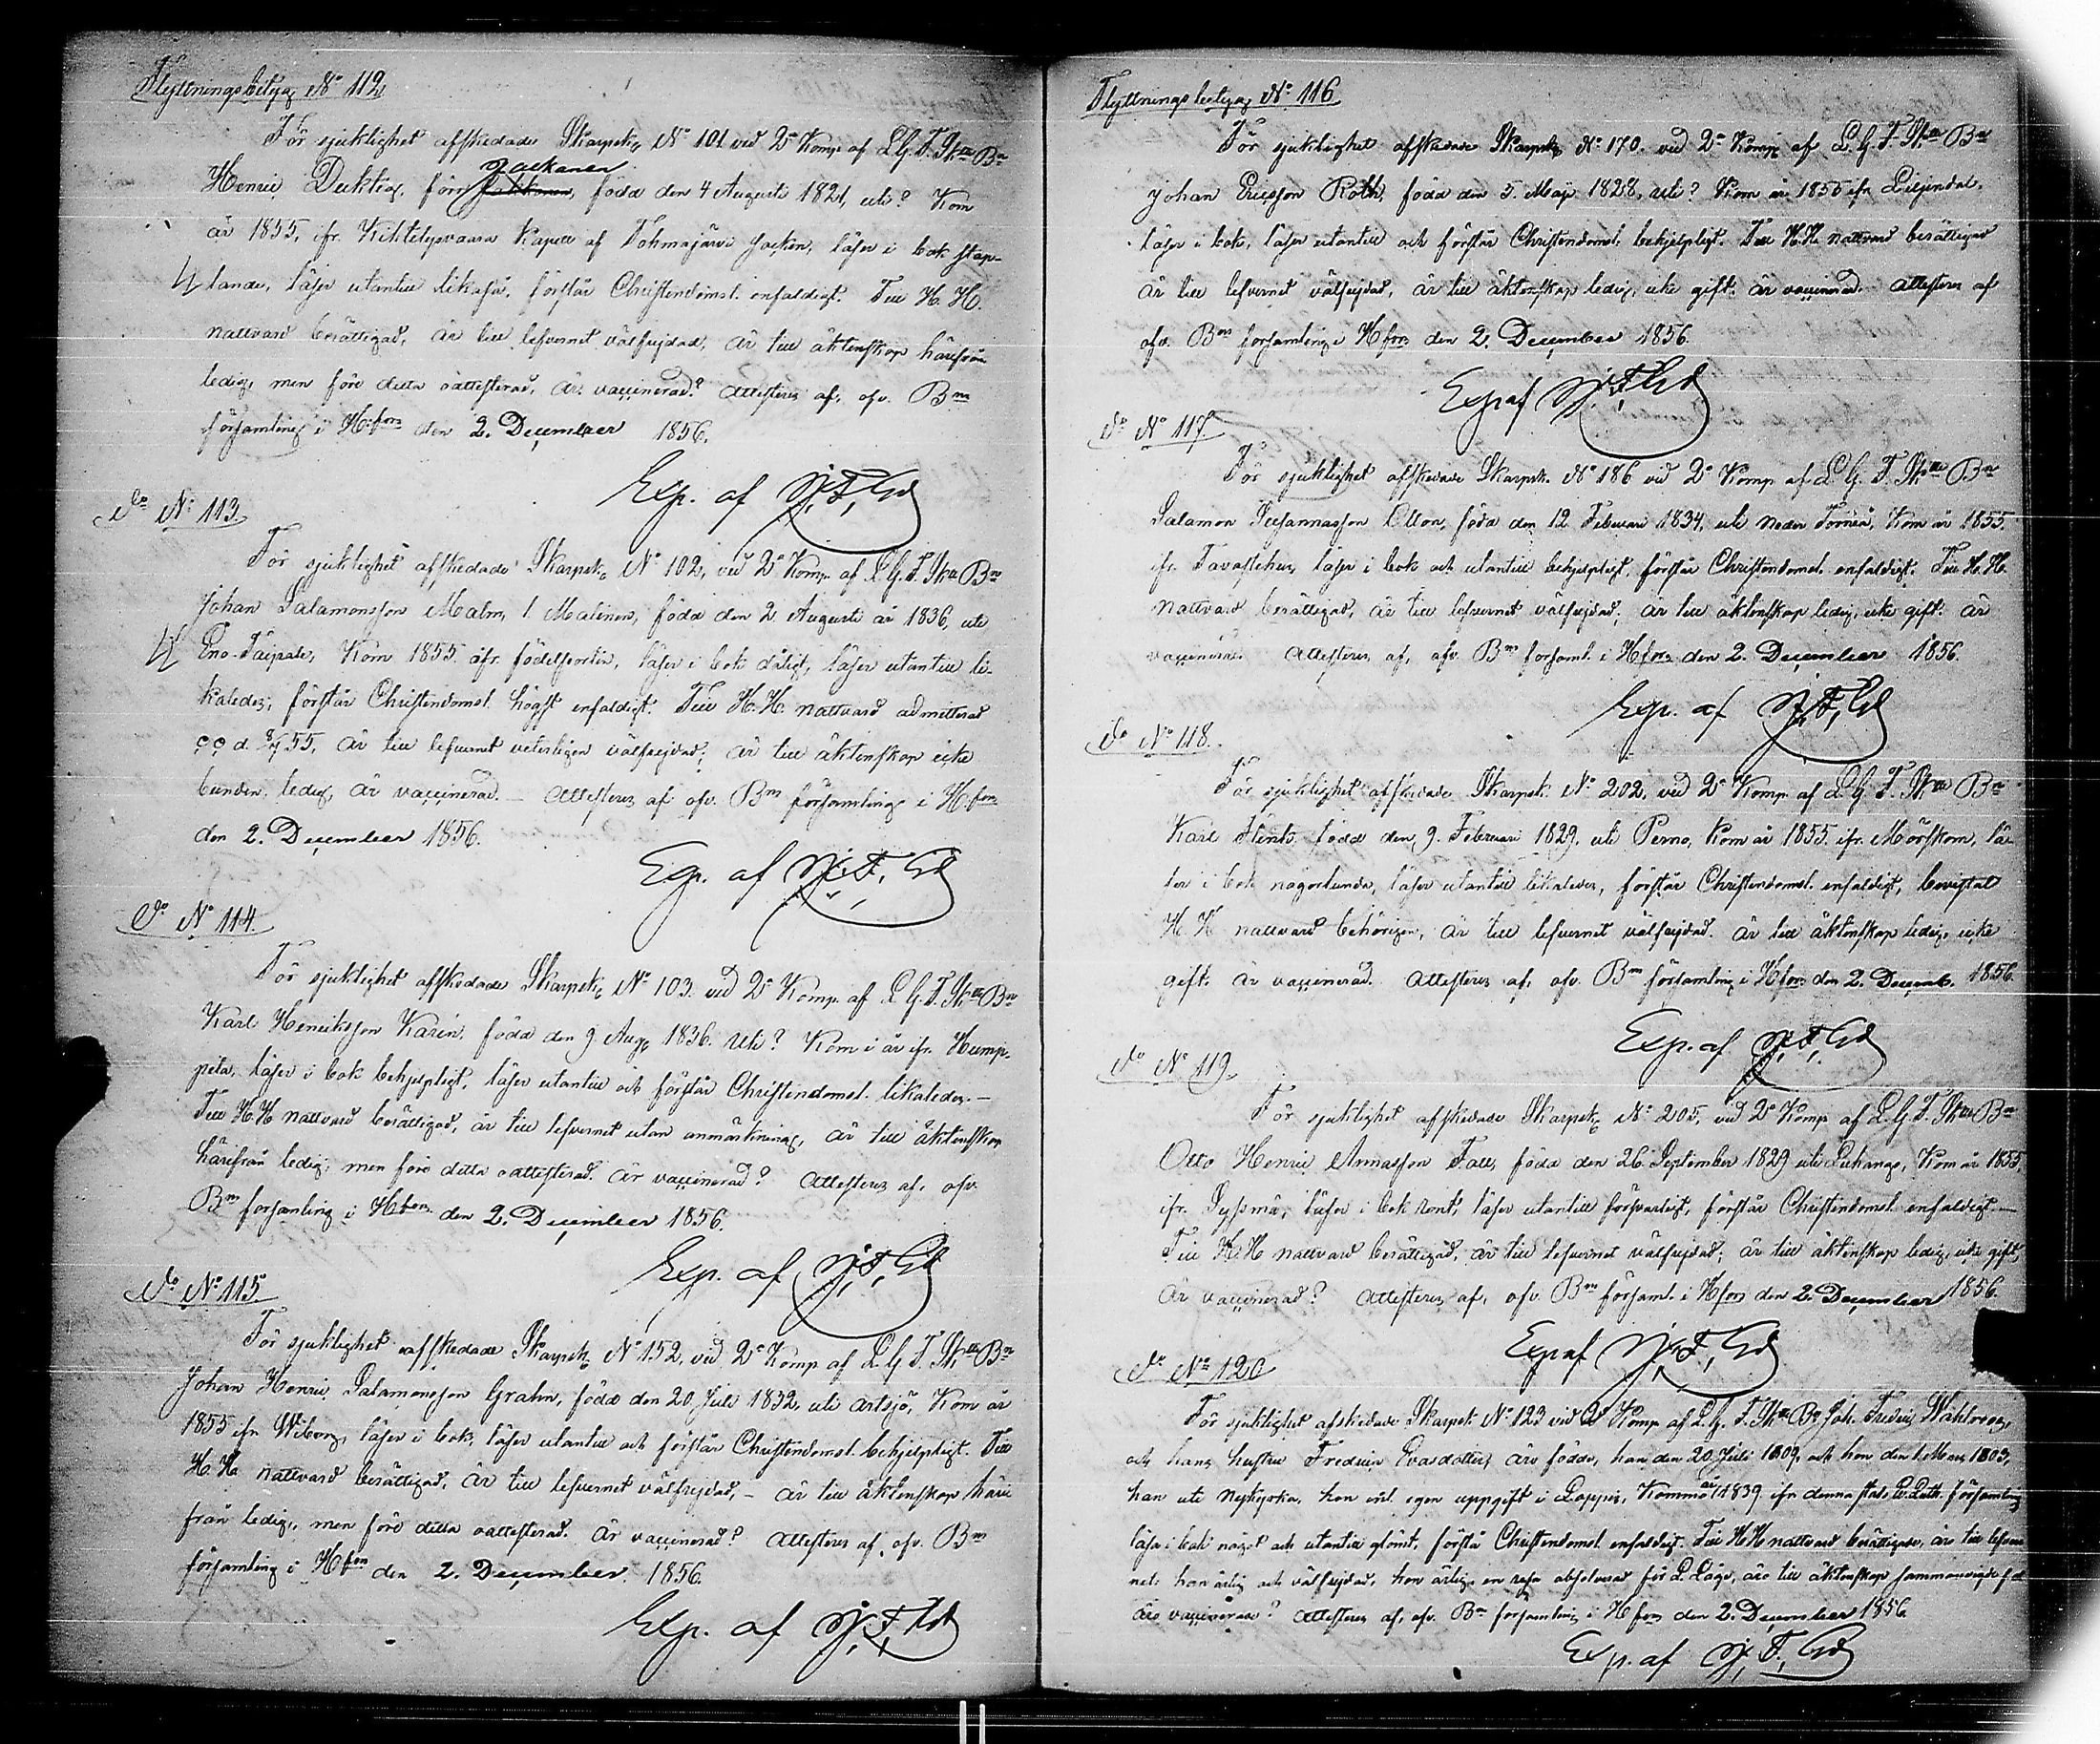 Flyttningsbetyg No 112
För sjuklighet afskedade Skarpsk. No 101 vid 2a Komp. af L.G.F. Sk. Bn
Henric Duktig, förr född den 4 Augusti 1821, uti? Kom
år 1855, ifr. Kihtelysvaara Kapell af Tohmajärvi Socken, läser i bok stap-
lande, läser utantill likaså, förstår Christendomsl. enfaldigt. Till H. H.
nattvard berättigad, är till lefvernet välfrejdad, är till äktenskap härifrån
ledig, men före detta oattesterad, är vaccinerad? Attesteras af, ofv. Bns
församling i H:fors den 2. December 1856.
Exp. af
do No 113.
För sjuklighet afskedade Skarpsk. No 102, vid 2a Komp. af L.G.F. Sk. Bn
Johan Salamonsson Malm, l. Malinen, född den 2 Augusti år 1836, uti
Eno-Taipale, Kom 1855 ifr. födelseorten, läser i bok dåligt, läser utantill li-
kaledes, förstår Christendomsl. högst enfaldigt. Till H.H. nattvard admitterad
d. 55, är till lefvernet veterligen välfrejdad; är till äktenskap icke
bunden. ledig, är vaccinerad. — Attesteras af ofv. Bns församling i H.fors
den 2. December 1856.
Exp. af
do No 114.
För sjuklighet afskedade Skarpsk. No 103. vid 2a Komp. af L.G.F. Sk. Bn
Karl Henriksson Karin, född den 9 Aug. 1836. uti? Kom i år ifr. Hump-
pila, läser i bok behjelpligt, läser utantill och förstår Christendomsl. likaledes. —
Till H.H nattvard berättigad, är till lefvernet utan anmärkning, är till äktenskap
härifrån ledig, men före detta oattesterad. är vaccinerad? Attesteras af, ofv.
Bns församling i H.fors den 2. December 1856.
Exp. af
do No 115.
För sjuklighet afskedade Skarpsk. No 152, vid 2a Komp. af L.G.F. Sk. Bn
Johan Henric Salamonsson Grahn, född den 20 Juli 1832, uti Artsjö, Kom år
1855 ifr Wiborg, läser i bok, läser utantill och förstår Christendomsl. behjelpligt. Till
H.H. nattvard berättigad, är till lefvernet välfrejdad, — är till äktenskap häri
från ledig, men före detta oattesterad. är vaccinerad? Attesteras af, ofv. Bns
församling i Hfors den 2. December 1856.
Exp. af
Flyttningsbetyg No 116
För sjuklighet afskedade Skarpsk. No 170. vid 2a Komp. af L.G.F. Sk. Bn
Johan Ericsson Roth, född den 5. Maji 1828, uti? Kom år 1855 ifr Liljendal,
läser i bok, läser utantill och förstår Christendomsl. behjelpligt. Till H.H. nattvard berättigad
är till lefvernet välfrejdad, är till äktenskap ledig, icke gift. är vaccinerad. Attesteras af
ofv. Bns församling i Hfors den 2. December 1856.
Exp af
do No 117.
För sjuklighet afskedade Skarpsk. No 186 vid 2a Komp. af L.G.F. Sk. Bn
Salamon Susannasson Ollon, född den 12 Februari 1834, uti Neder Torneå, Kom år 1855.
ifr. Tavastehus, läser i bok och utantill behjelpligt, förstår Christendomsl. enfaldigt. Till H.H.
nattvard berättigad, är till lefvernet välfrejdad, är till äktenskap ledig, icke gift. är
vaccinerad. Attesteras af, ofv. Bns församl. i Hfors den 2. December 1856.
Exp. af
do No 118.
För sjuklighet afskedade Skarpsk. No 202, vid 2a Komp. af L.G.F. Sk. Bn
Karl Flink, född den 9. Februari 1829. uti Perno, Kom år 1855. ifr. Mörskom, lä-
ser i bok någorlunda, läser utantill likaledes, förstår Christendomsl. enfaldigt, bevistat
H H nattvard behörigen, är till lefvernet välfrejdad. är till äktenskap ledig, icke
gift. är vaccinerad. Attesteras af, ofv. Bns församling i Hfors den 2. Decemb. 1856.
Exp. af
do No 119.
För sjuklighet afskedade Skarpsk. No 205, vid 2a Komp. af L.G.F. Sk. Bn
Otto Henric Annasson Fall, född den 26 September 1829 uti Luhango, Kom år 1855.
ifr. Sysmä, läser i bok rent, läser utantill försvarligt, förstår Christendomsl. enfaldigt. —
Till H.H nattvard berättigad, är till lefvernet välfrejdad; är till äktenskap ledig, icke gift,
är vaccinerad? Attesteras af, ofv. Bns församl. i Hfors den 2. December 1856.
Exp af
do No 120
För sjuklighet afskedade Skarpsk. No 123 vid 2a Komp. af L.G.F. Sk. Bn Joh. Fredric Wahlroos,
och hans hustru Fredrica Evasdotter, äro födde, han den 20 Juli 1809, och hon den 1 Mars 1803,
han uti Nykyrka, hon enl. egen uppgift i Loppis, Kommo år 1839 ifr denna stads Ev. Luth. församling
läsa i bok något och utantill glömt, förstå Christendomsl. enfaldigt. Till H H nattvard berättigade, äro till lefver-
net: han ärlig och välfrejdad, hon ärlig, en resa absolverad för L. Läge, äro till äktenskap sammanvigde
äro vaccinerade? Attesteras af, ofv. Bns församling i Hfors den 2. December 1856.
Exp. af